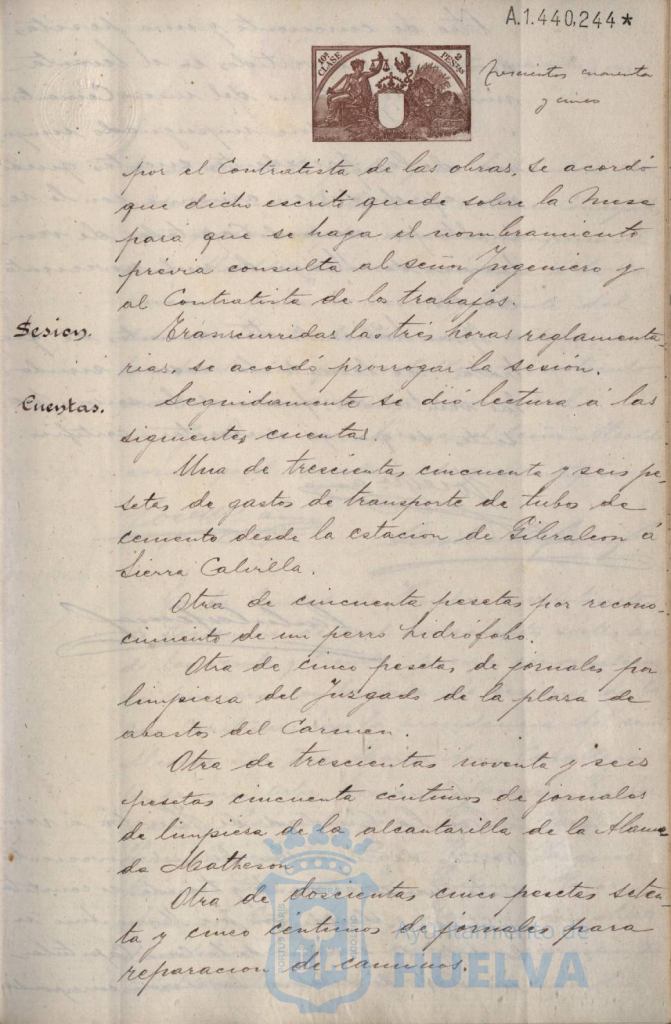 A.1.440,244*
10ª CLASE
2 PESETAS
Trescientos cuarenta
y cinco
por el Contratista de las obras, se acordó
que dicho escrito quede sobre la Mesa
para que se haga el nombramiento
prévia consulta al señor Ingeniero y
al Contratista de los trabajos.
Sesion.
Transcurridas las tres horas reglamenta-
rias, se acordó prorrogar la sesión.
Cuentas.
Seguidamente se dió lectura á las
siguientes cuentas.
Una de trescientas cincuenta y seis pe-
setas de gastos de transporte de tubos de
cemento desde la estacion de Gibraleon á
Sierra Calvilla.
Otra de cincuenta pesetas por recono-
cimiento de un perro hidrófobo.
Otra de cinco pesetas de jornales por
limpiesa del Juzgado de la plaza de
abastos del Carmen.
Otra de trescientas noventa y seis
pesetas cincuenta céntimos de jornales
de limpiesa de la alcantarilla de la Alame-
da Matheson
Otra de doscientas cinco pesetas seten-
ta y cinco céntimos de jornales para
reparacion de caminos.
Ayuntamiento de
HUELVA